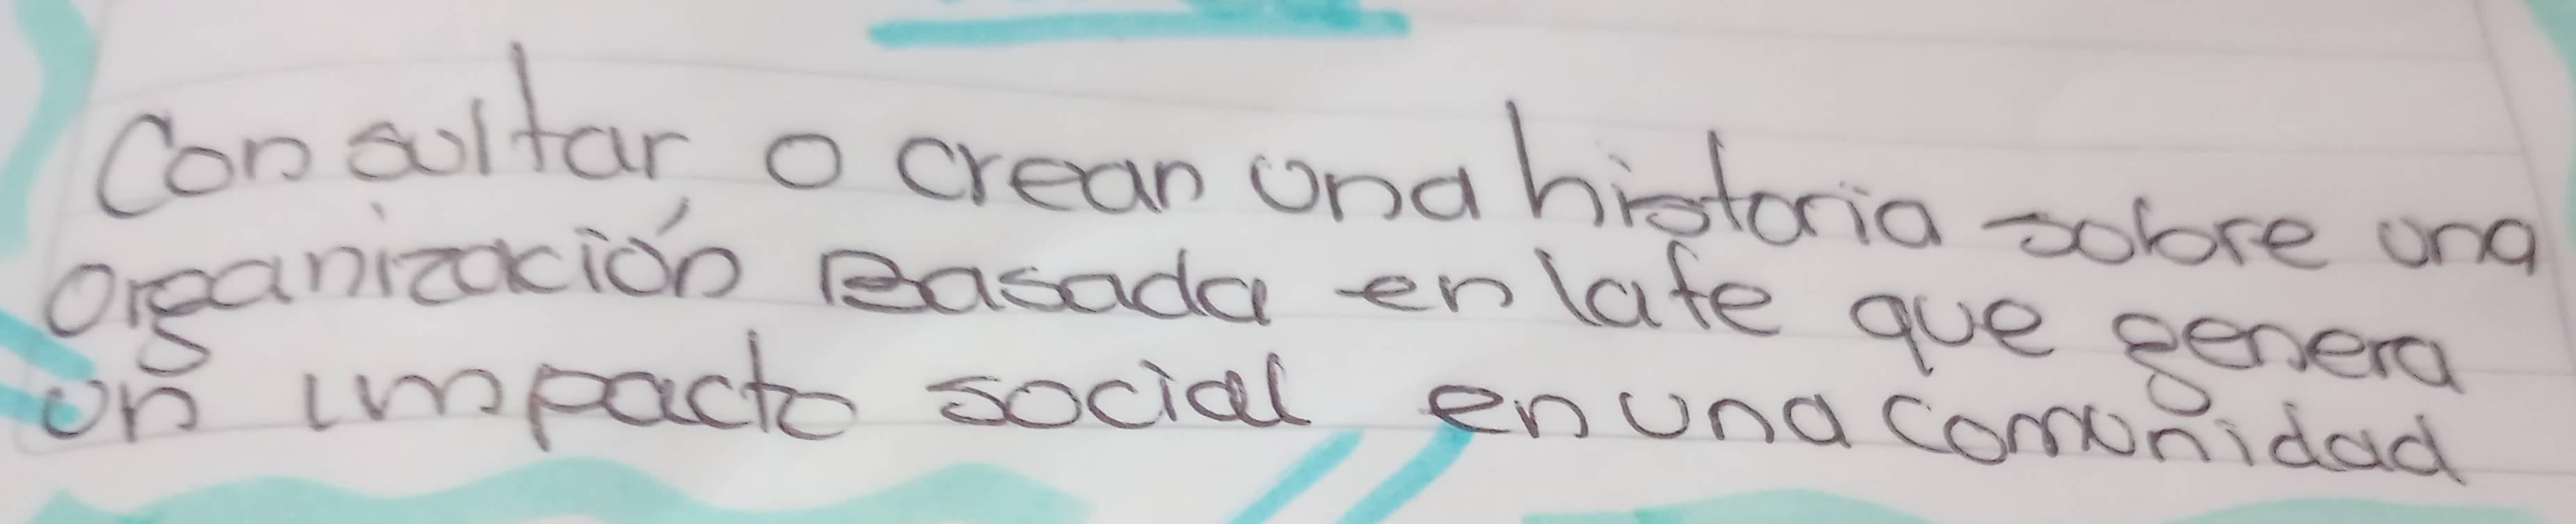 Consultar o crear una historia sobre una
organización Basada en la fe que genera
un impacto social en una comunidad